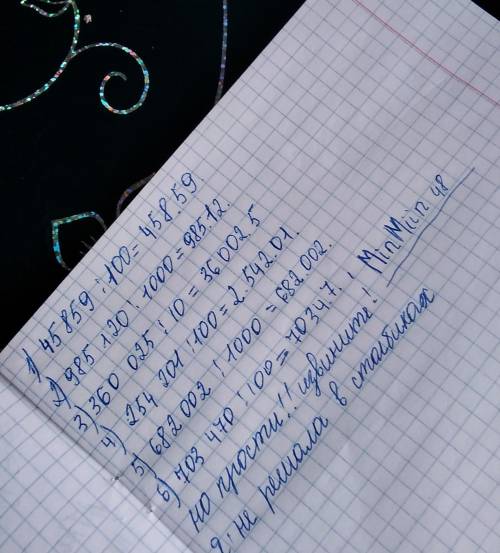 1) 45859 : 100 = 458.59.
2) 985 120 : 1000 = 985.12.
3) 360 025 : 10 = 36002.5
4) 254 201 : 100 = 2.542.01.
5) 682002 : 1000 = 682.002.
6) 703 470 : 100 = 7034.7.
но прости!! извините! MinMiin48
я не решала в столбиках